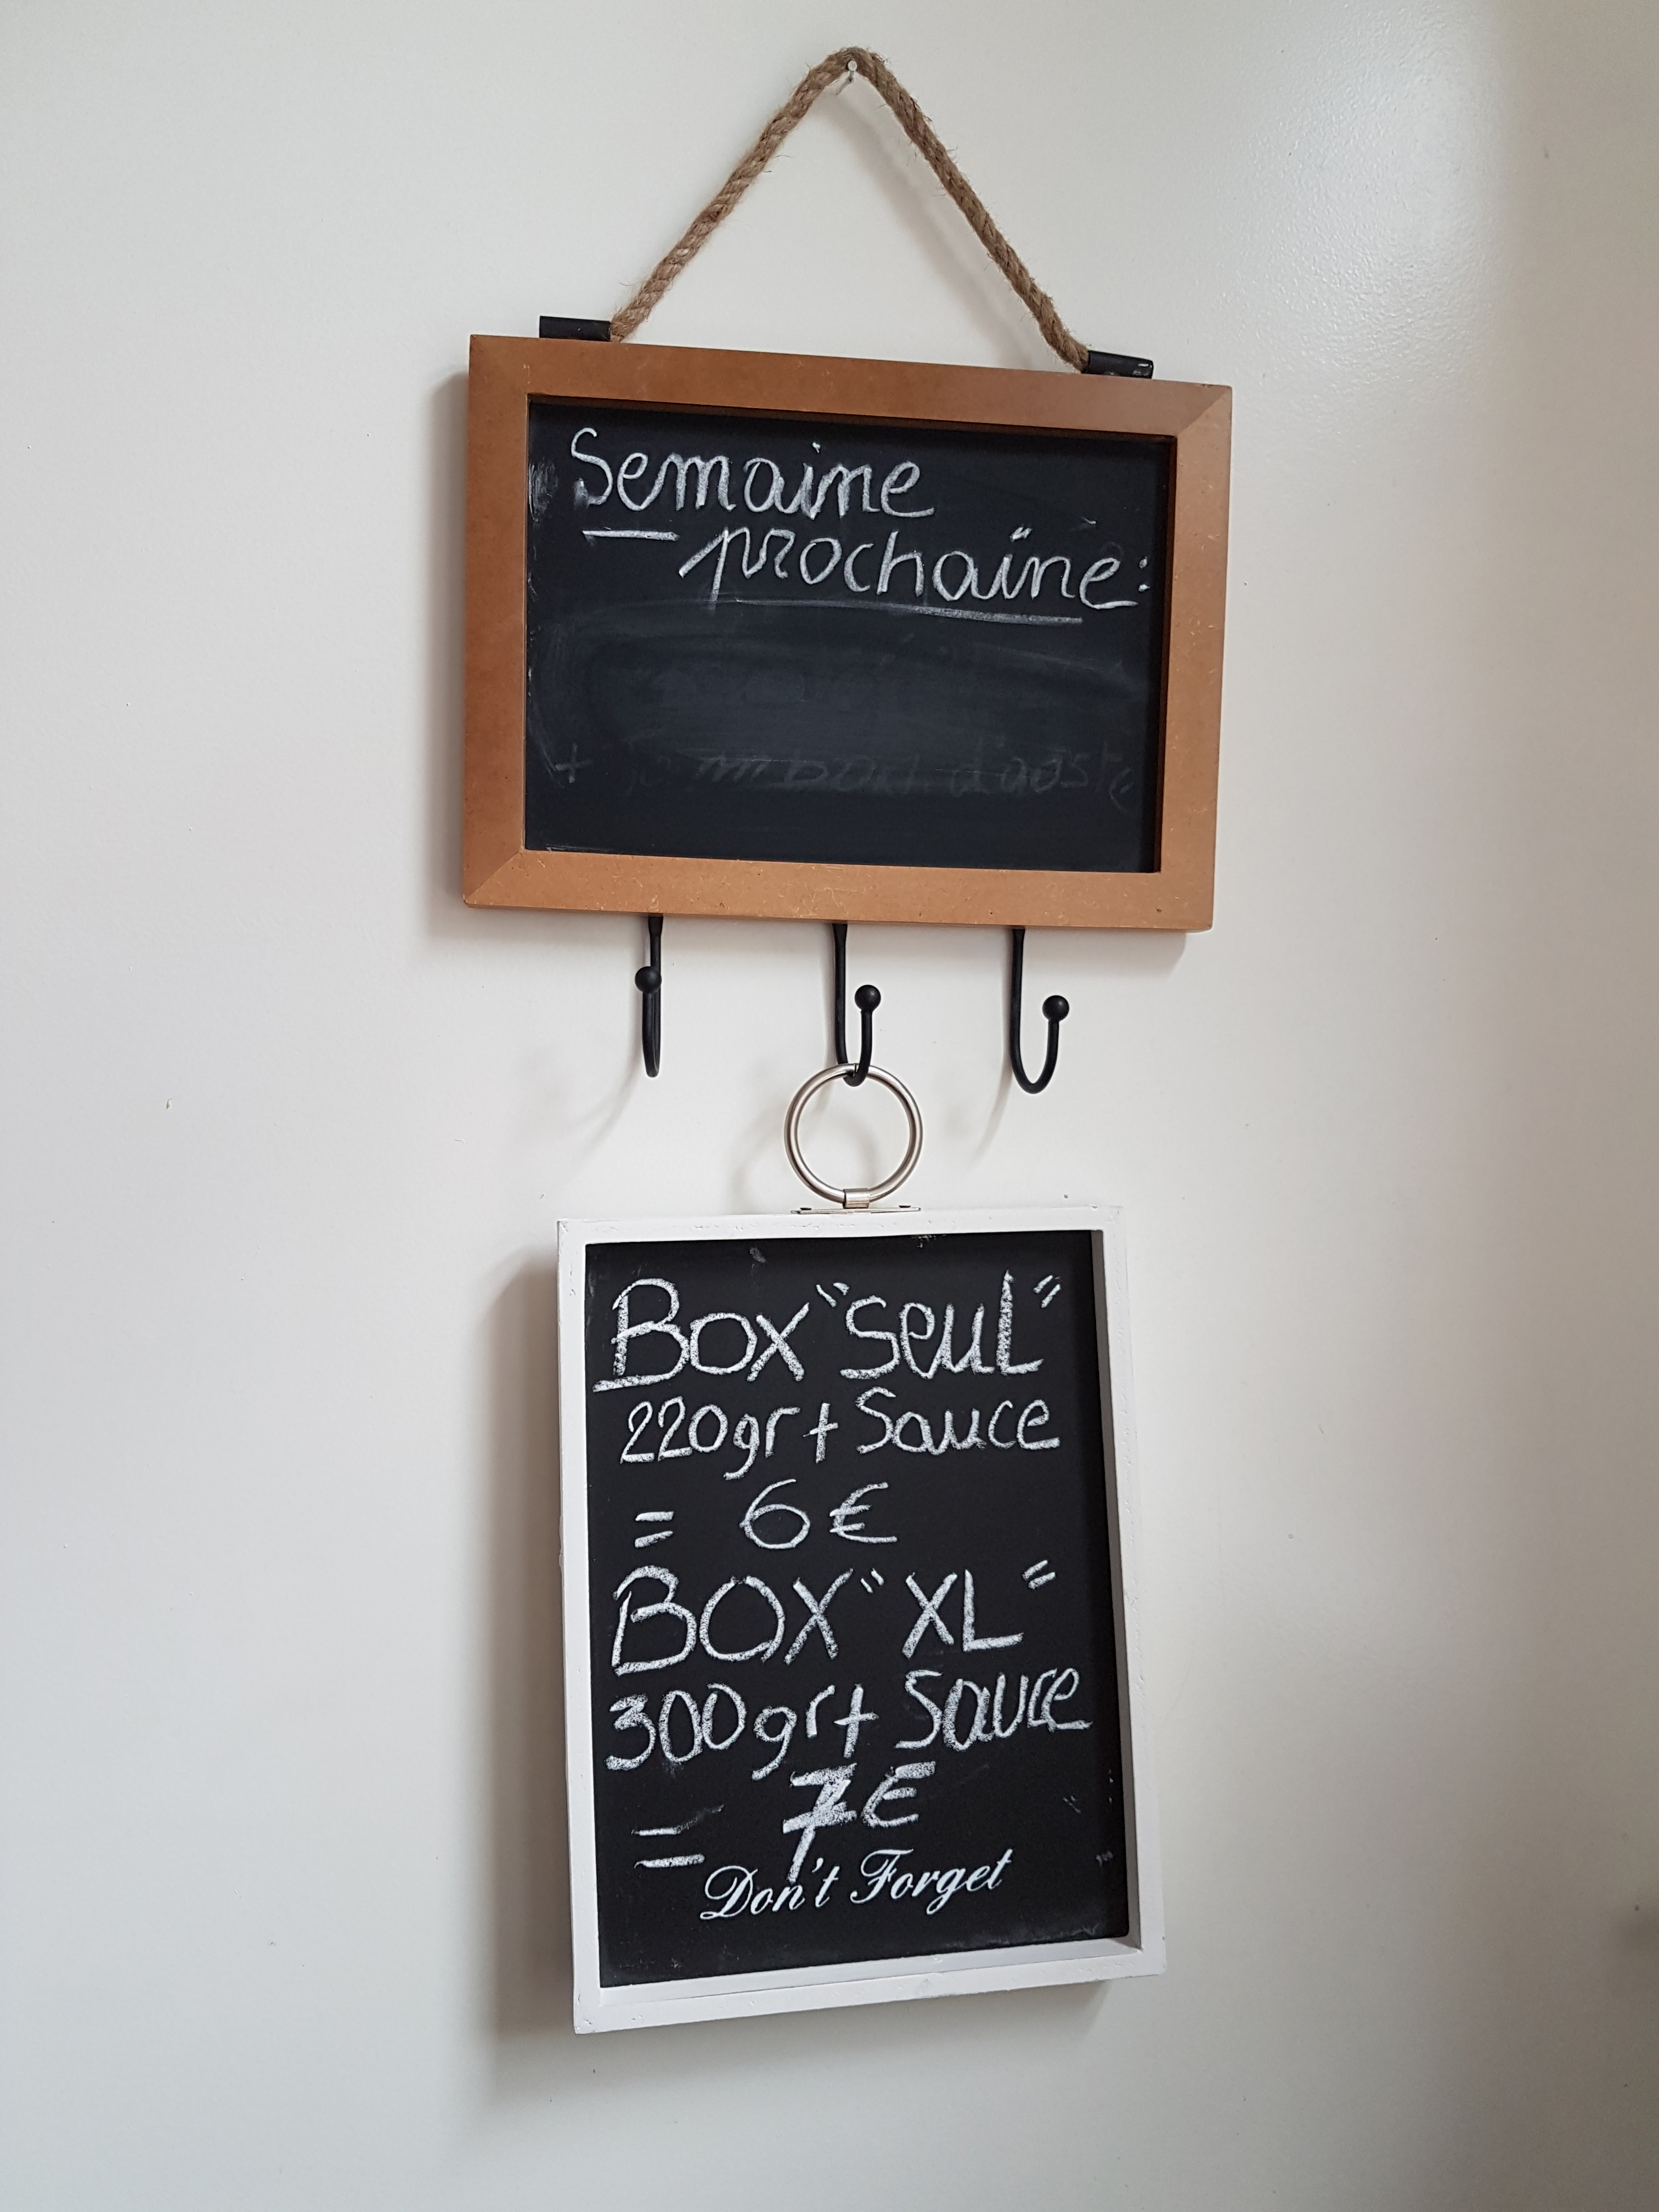 Semaine
prochaine:
+ jambon d'aoste
Box "Seul"
220gr + Sauce
= 6€
BOX "XL"
300gr + Sauce
= 7€
Don't Forget